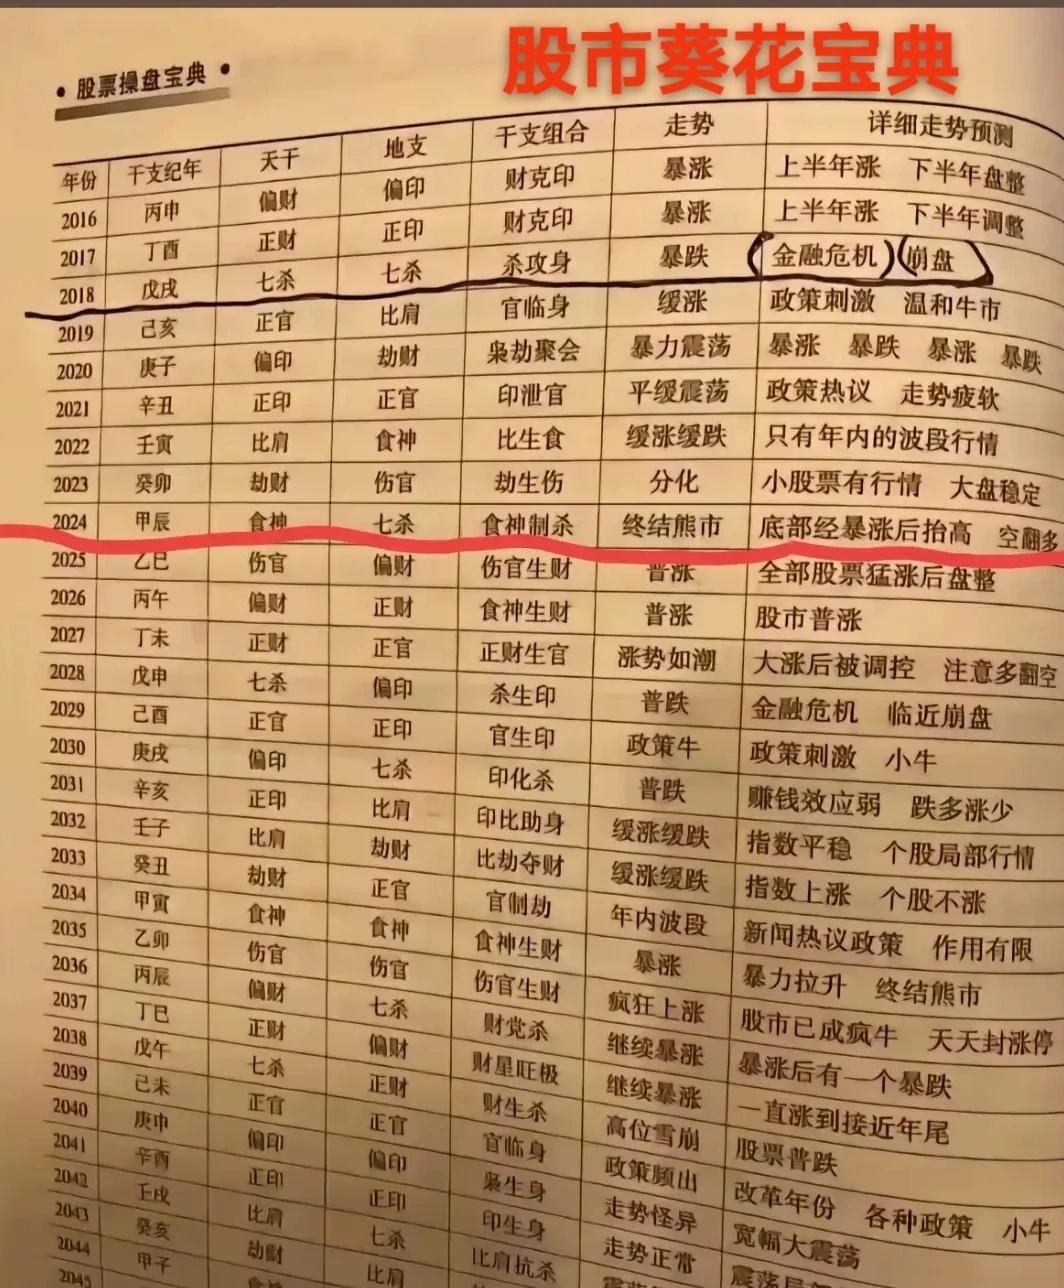 股市葵花宝典
• 股票操盘宝典 •
年份 干支纪年 天干 地支 干支组合 走势 详细走势预测
2016 丙申 偏财 偏印 财克印 暴涨 上半年涨 下半年盘整
2017 丁酉 正财 正印 财克印 暴涨 上半年涨 下半年调整
2018 戊戌 七杀 七杀 杀攻身 暴跌 金融危机 崩盘
2019 己亥 正官 比肩 官临身 缓涨 政策刺激 温和牛市
2020 庚子 偏印 劫财 枭劫聚会 暴力震荡 暴涨 暴跌 暴涨 暴跌
2021 辛丑 正印 正官 印泄官 平缓震荡 政策热议 走势疲软
2022 壬寅 比肩 食神 比生食 缓涨缓跌 只有年内的波段行情
2023 癸卯 劫财 伤官 劫生伤 分化 小股票有行情 大盘稳定
2024 甲辰 食神 七杀 食神制杀 终结熊市 底部经暴涨后抬高 空翻多
2025 乙巳 伤官 偏财 伤官生财 普涨 全部股票猛涨后盘整
2026 丙午 偏财 正财 食神生财 普涨 股市普涨
2027 丁未 正财 正官 正财生官 涨势如潮 大涨后被调控 注意多翻空
2028 戊申 七杀 偏印 杀生印 普跌 金融危机 临近崩盘
2029 己酉 正官 正印 官生印 政策牛 政策刺激 小牛
2030 庚戌 偏印 七杀 印化杀 普跌 赚钱效应弱 跌多涨少
2031 辛亥 正印 比肩 印比助身 缓涨缓跌 指数平稳 个股局部行情
2032 壬子 比肩 劫财 比劫夺财 缓涨缓跌 指数上涨 个股不涨
2033 癸丑 劫财 正官 官制劫 年内波段 新闻热议政策 作用有限
2034 甲寅 食神 食神 食神生财 暴涨 暴力拉升 终结熊市
2035 乙卯 伤官 伤官 伤官生财 疯狂上涨 股市已成疯牛 天天封涨停
2036 丙辰 偏财 七杀 财党杀 继续暴涨 暴涨后有一个暴跌
2037 丁巳 正财 偏财 财星旺极 继续暴涨 一直涨到接近年尾
2038 戊午 七杀 正财 财生杀 高位雪崩 股票普跌
2039 己未 正官 正官 官临身 政策频出 改革年份 各种政策 小牛
2040 庚申 偏印 偏印 枭生身 走势怪异 宽幅大震荡
2041 辛酉 正印 正印 印生身 走势正常
2042 壬戌 比肩 七杀 比肩抗杀
2043 癸亥 劫财 比肩
2044 甲子 食神
2045